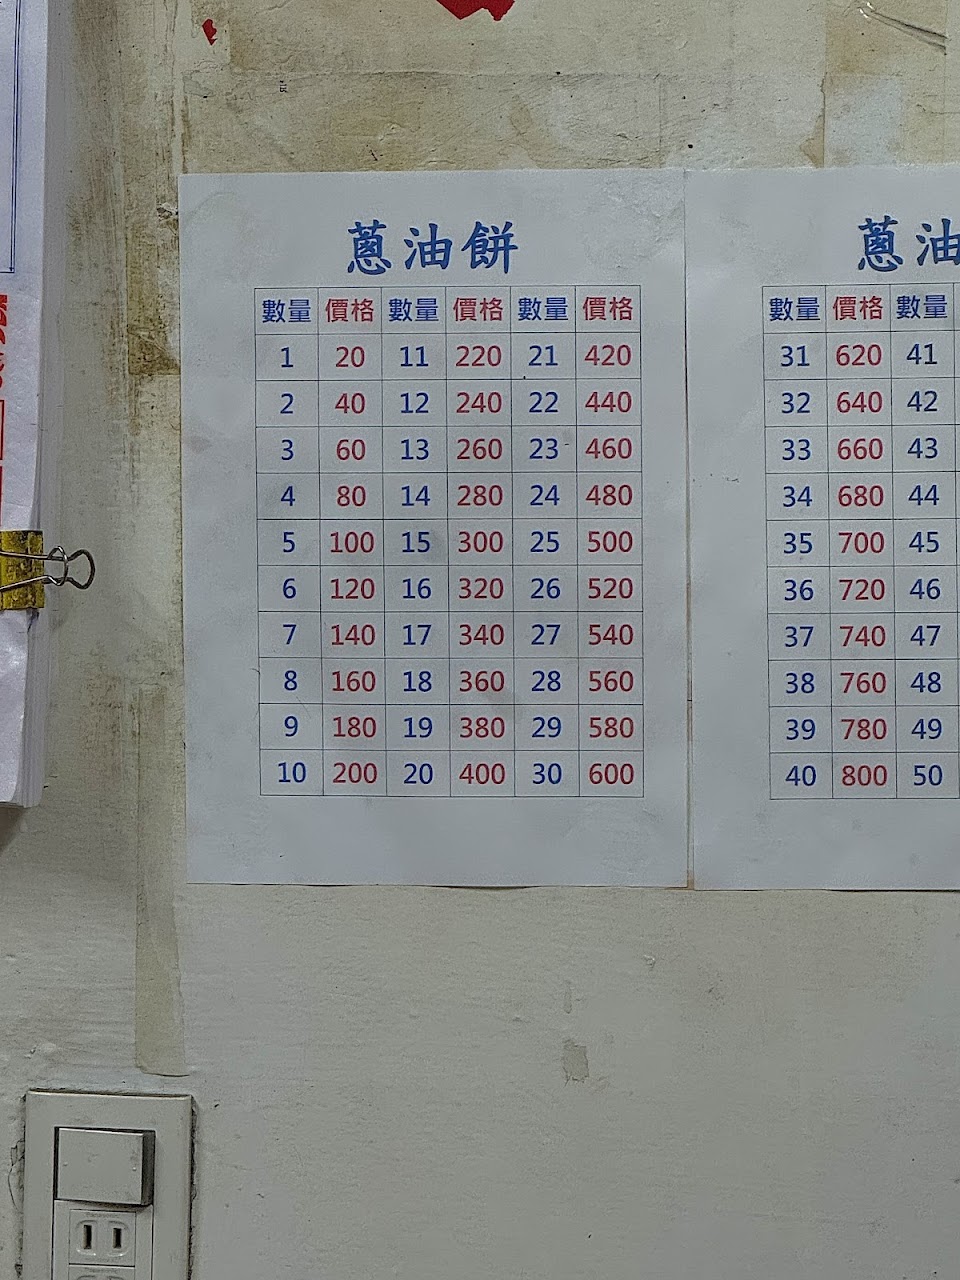 蔥油餅
數量 價格 數量 價格 數量 價格
1 20 11 220 21 420
2 40 12 240 22 440
3 60 13 260 23 460
4 80 14 280 24 480
5 100 15 300 25 500
6 120 16 320 26 520
7 140 17 340 27 540
8 160 18 360 28 560
9 180 19 380 29 580
10 200 20 400 30 600
蔥油
數量 價格 數量
31 620 41
32 640 42
33 660 43
34 680 44
35 700 45
36 720 46
37 740 47
38 760 48
39 780 49
40 800 50